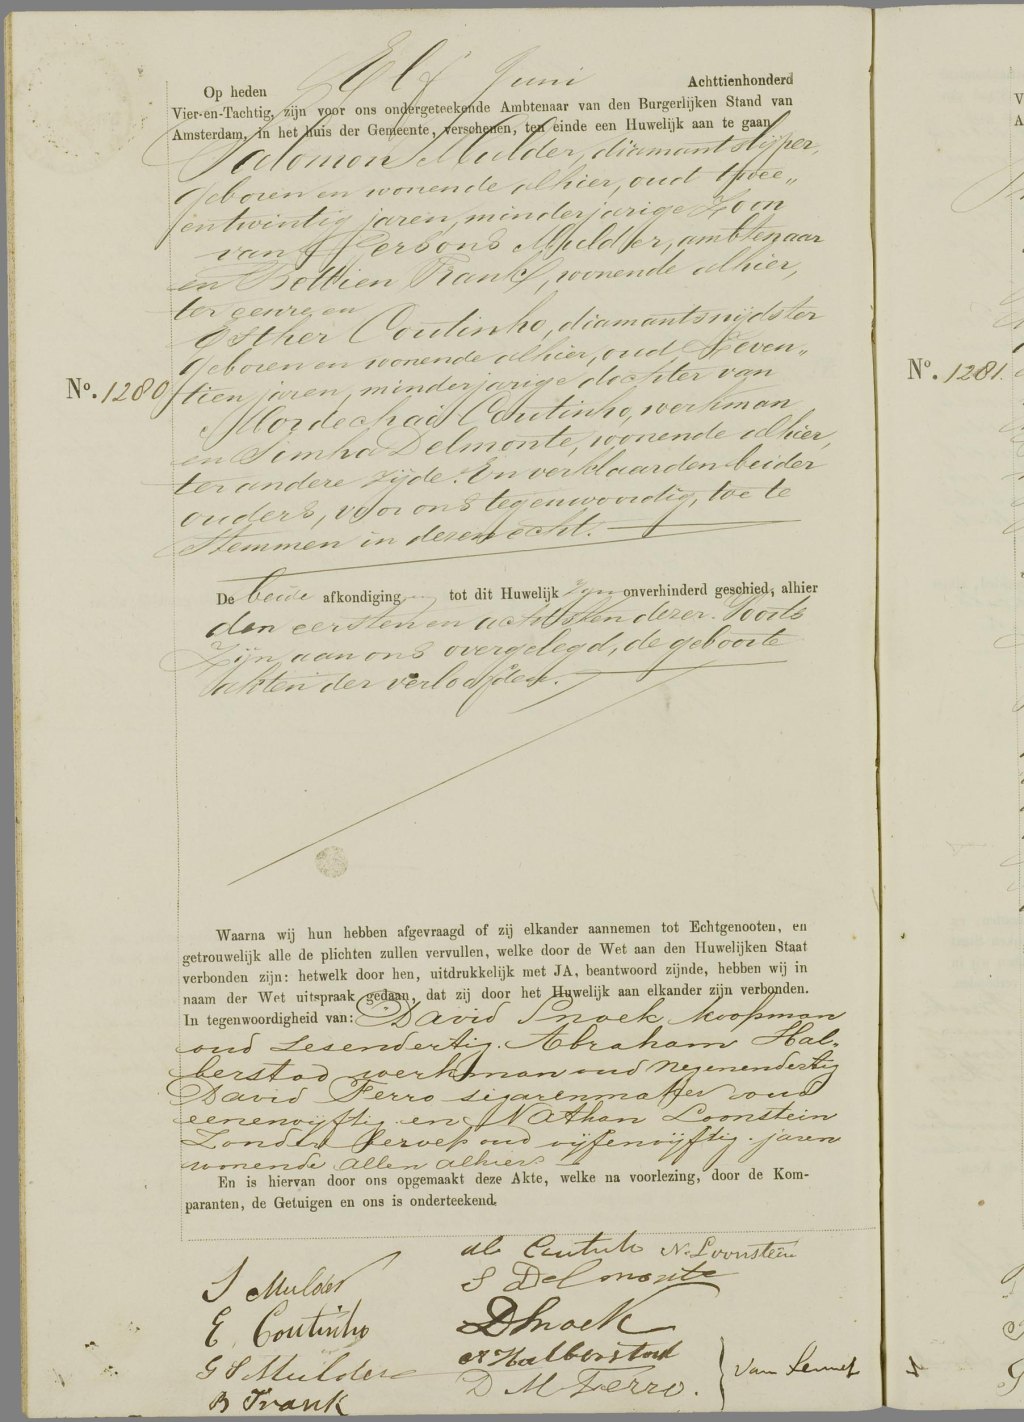 Op heden Elf Juni Achttienhonderd
Vier-en-Tachtig, zijn voor ons ondergeteekende Ambtenaar van den Burgerlijken Stand van
Amsterdam, in het huis der Gemeente, verschenen, ten einde een Huwelijk aan te gaan
Salomon Mulder, diamantslijper,
geboren en wonende alhier, oud twee„
entwintig jaren, minderjarige Zoon
van Gersons Mulder, ambtenaar
en Bettien Frank, wonende alhier,
ter eenre, en
Esther Coutinho, diamantsnijdster
geboren en wonende alhier, oud Zeven„
No. 1280 tien jaren, minderjarige dochter van
Mordechai Coutinho, werkman
en Simha Delmonte, wonende alhier,
ter andere zijde. En verklaarden beider
ouders, voor ons tegenwoordig, toe te
stemmen in dezen echt.
De beide afkondigingen tot dit Huwelijk zijn onverhinderd geschied, alhier
den eersten en achtsten dezer. Voorts
Zijn aan ons overgelegd, de geboorte
akten der verloofden.
Waarna wij hun hebben afgevraagd of zij elkander aannemen tot Echtgenooten, en
getrouwelijk alle de plichten zullen vervullen, welke door de Wet aan den Huwelijken Staat
verbonden zijn: hetwelk door hen, uitdrukkelijk met JA, beantwoord zijnde, hebben wij in
naam der Wet uitspraak gedaan, dat zij door het Huwelijk aan elkander zijn verbonden.
In tegenwoordigheid van: David Snoek koopman
oud zesendertig. Abraham Hal„
berstad werkman oud negenendertig
David Ferro sigarenmaker oud
eenenvijftig en Nathan Loonstein
Zonder beroep oud vijfenvijftig jaren
wonende allen alhier
En is hiervan door ons opgemaakt deze Akte, welke na voorlezing, door de Kom-
paranten, de Getuigen en ons is onderteekend.
S Mulder
E. Coutinho
G S Mulder
B Frank
Coutinho N. Loonstein
S Delmonte
D Snoek
A Halberstad
D M Ferro.
van Lennep
No. 1281.